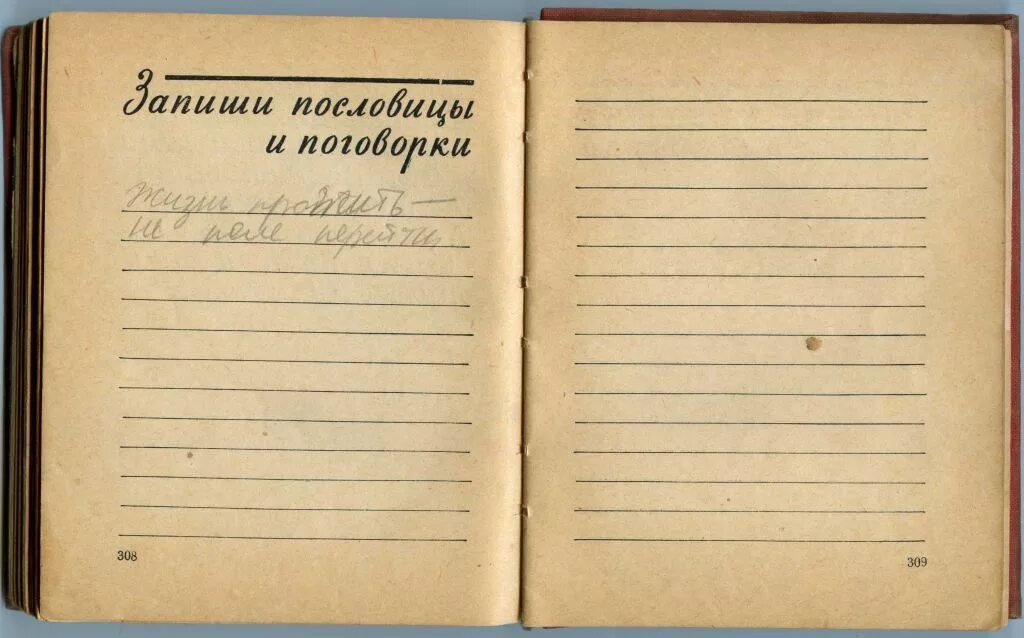 Запиши пословицы
и поговорки
Жизнь прожить —
не поле перейти.
308
309